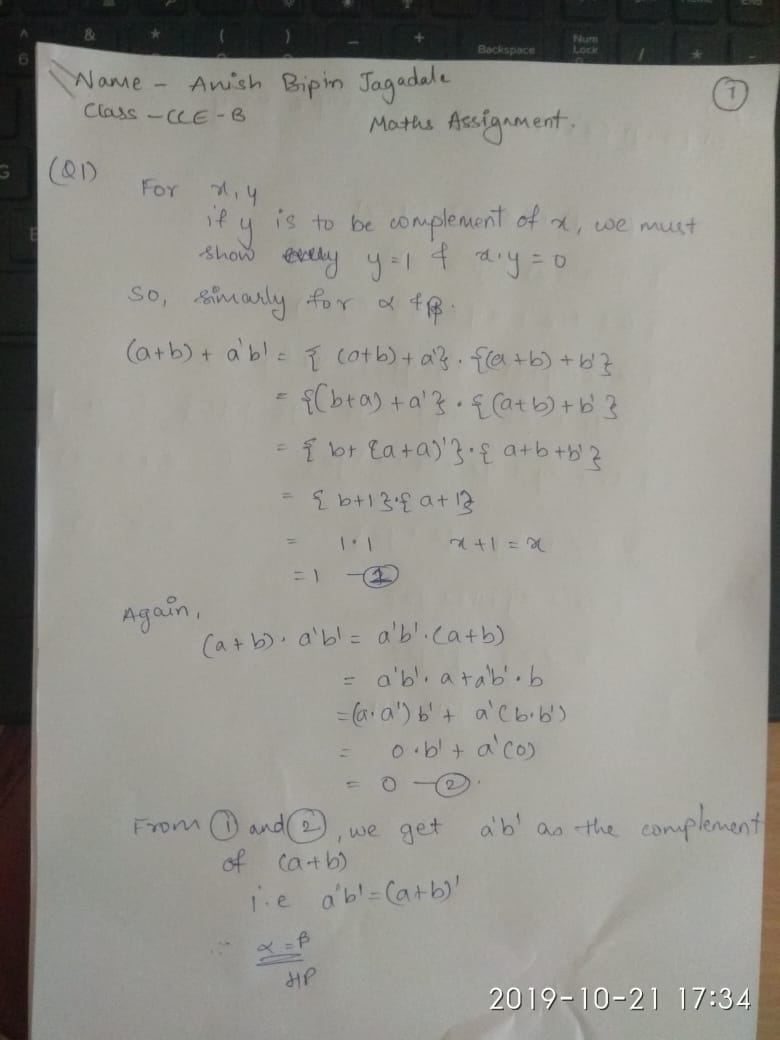 & * ( ) - + Backspace Num Lock / *
6
G
E
Name - Anish Bipin Jagadale
1
Class - CCE - B
Maths Assignment.
(Q1)
For x, y
if y is to be complement of x, we must
show y = 1 & x.y = 0
So, simarly for α & β.
(a+b) + a'b' = { (a+b) + a'} . {(a+b) + b'}
= {(b+a) + a'} . {(a+b) + b'}
= { b+ {a+a)'} . { a+b+b'}
= { b+1}.{ a+1}
= 1.1 x+1 = x
= 1 - 1
Again,
(a+b). a'b' = a'b'.(a+b)
= a'b'. a + a'b'. b
= (a.a') b' + a'(b.b')
= 0.b' + a'(0)
= 0 - 2.
From 1 and 2, we get a'b' as the complement
of (a+b)
i.e a'b' = (a+b)'
∴ α = β
HP
2019-10-21 17:34